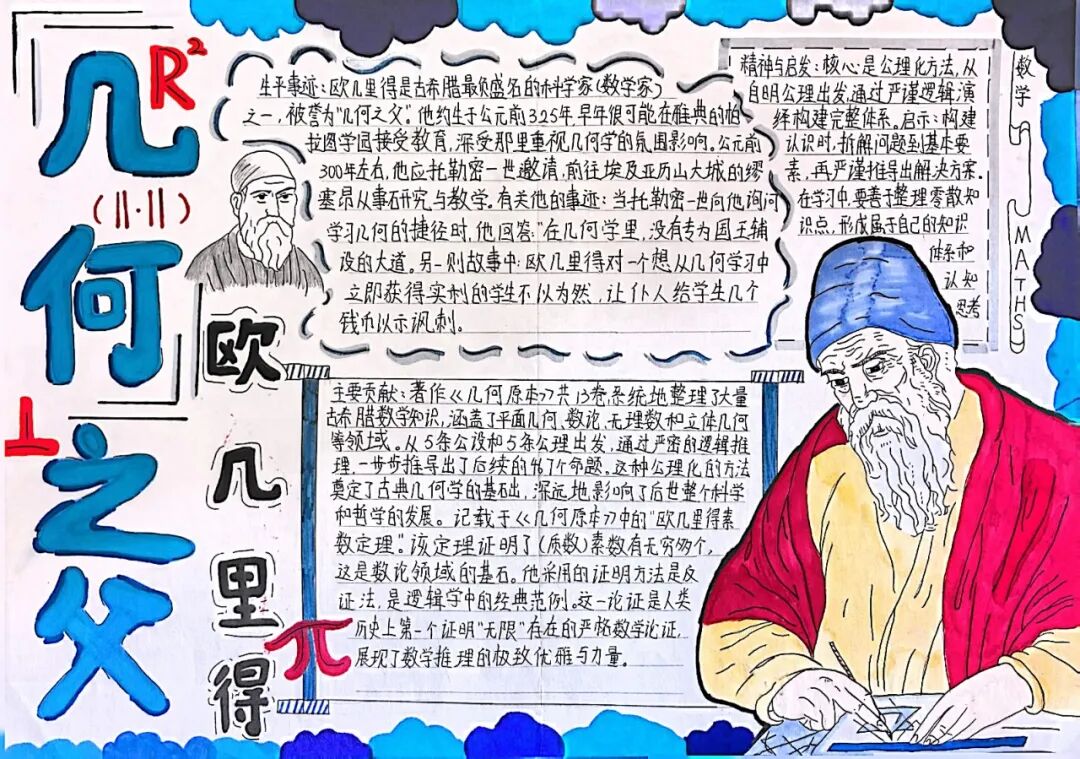 几何之父
R²
(||·||)
⊥
欧几里得
π
生平事迹:欧几里得是古希腊最负盛名的科学家(数学家)
之一,被誉为"几何之父"。他约生于公元前325年,早年很可能在雅典的柏
拉图学园接受教育,深受那里重视几何学的氛围影响。公元前
300年左右,他应托勒密一世邀请,前往埃及亚历山大城的缪
塞昂从事研究与教学。有关他的事迹:当托勒密一世向他询问
学习几何的捷径时,他回答:"在几何学里,没有专为国王铺
设的大道。另一则故事中:欧几里得对一个想从几何学习中
立即获得实利的学生不以为然,让仆人给学生几个
钱币以示讽刺。
精神与启发:核心是公理化方法,从
自明公理出发通过严谨逻辑演
绎构建完整体系。启示:构建
认识时,拆解问题到基本要
素,再严谨推导出解决方案。
在学习中,要善于整理零散知
识点,形成属于自己的知识
体系和
认知
思考
数学
MATHS
主要贡献:著作《几何原本》共13卷,系统地整理了大量
古希腊数学知识,涵盖了平面几何、数论、无理数和立体几何
等领域。从5条公设和5条公理出发,通过严密的逻辑推
理,一步步推导出了后续的467个命题。这种公理化的方法
奠定了古典几何学的基石出,深远地影响了后世整个科学
和哲学的发展。记载于《几何原本》中的"欧几里得素
数定理"。该定理证明了(质数)素数有无穷多个,
这是数论领域的基石。他采用的证明方法是反
证法,是逻辑学中的经典范例。这一论证是人类
历史上第一个证明"无限"存在的严格数学论证,
展现了数学推理的极致优雅与力量。